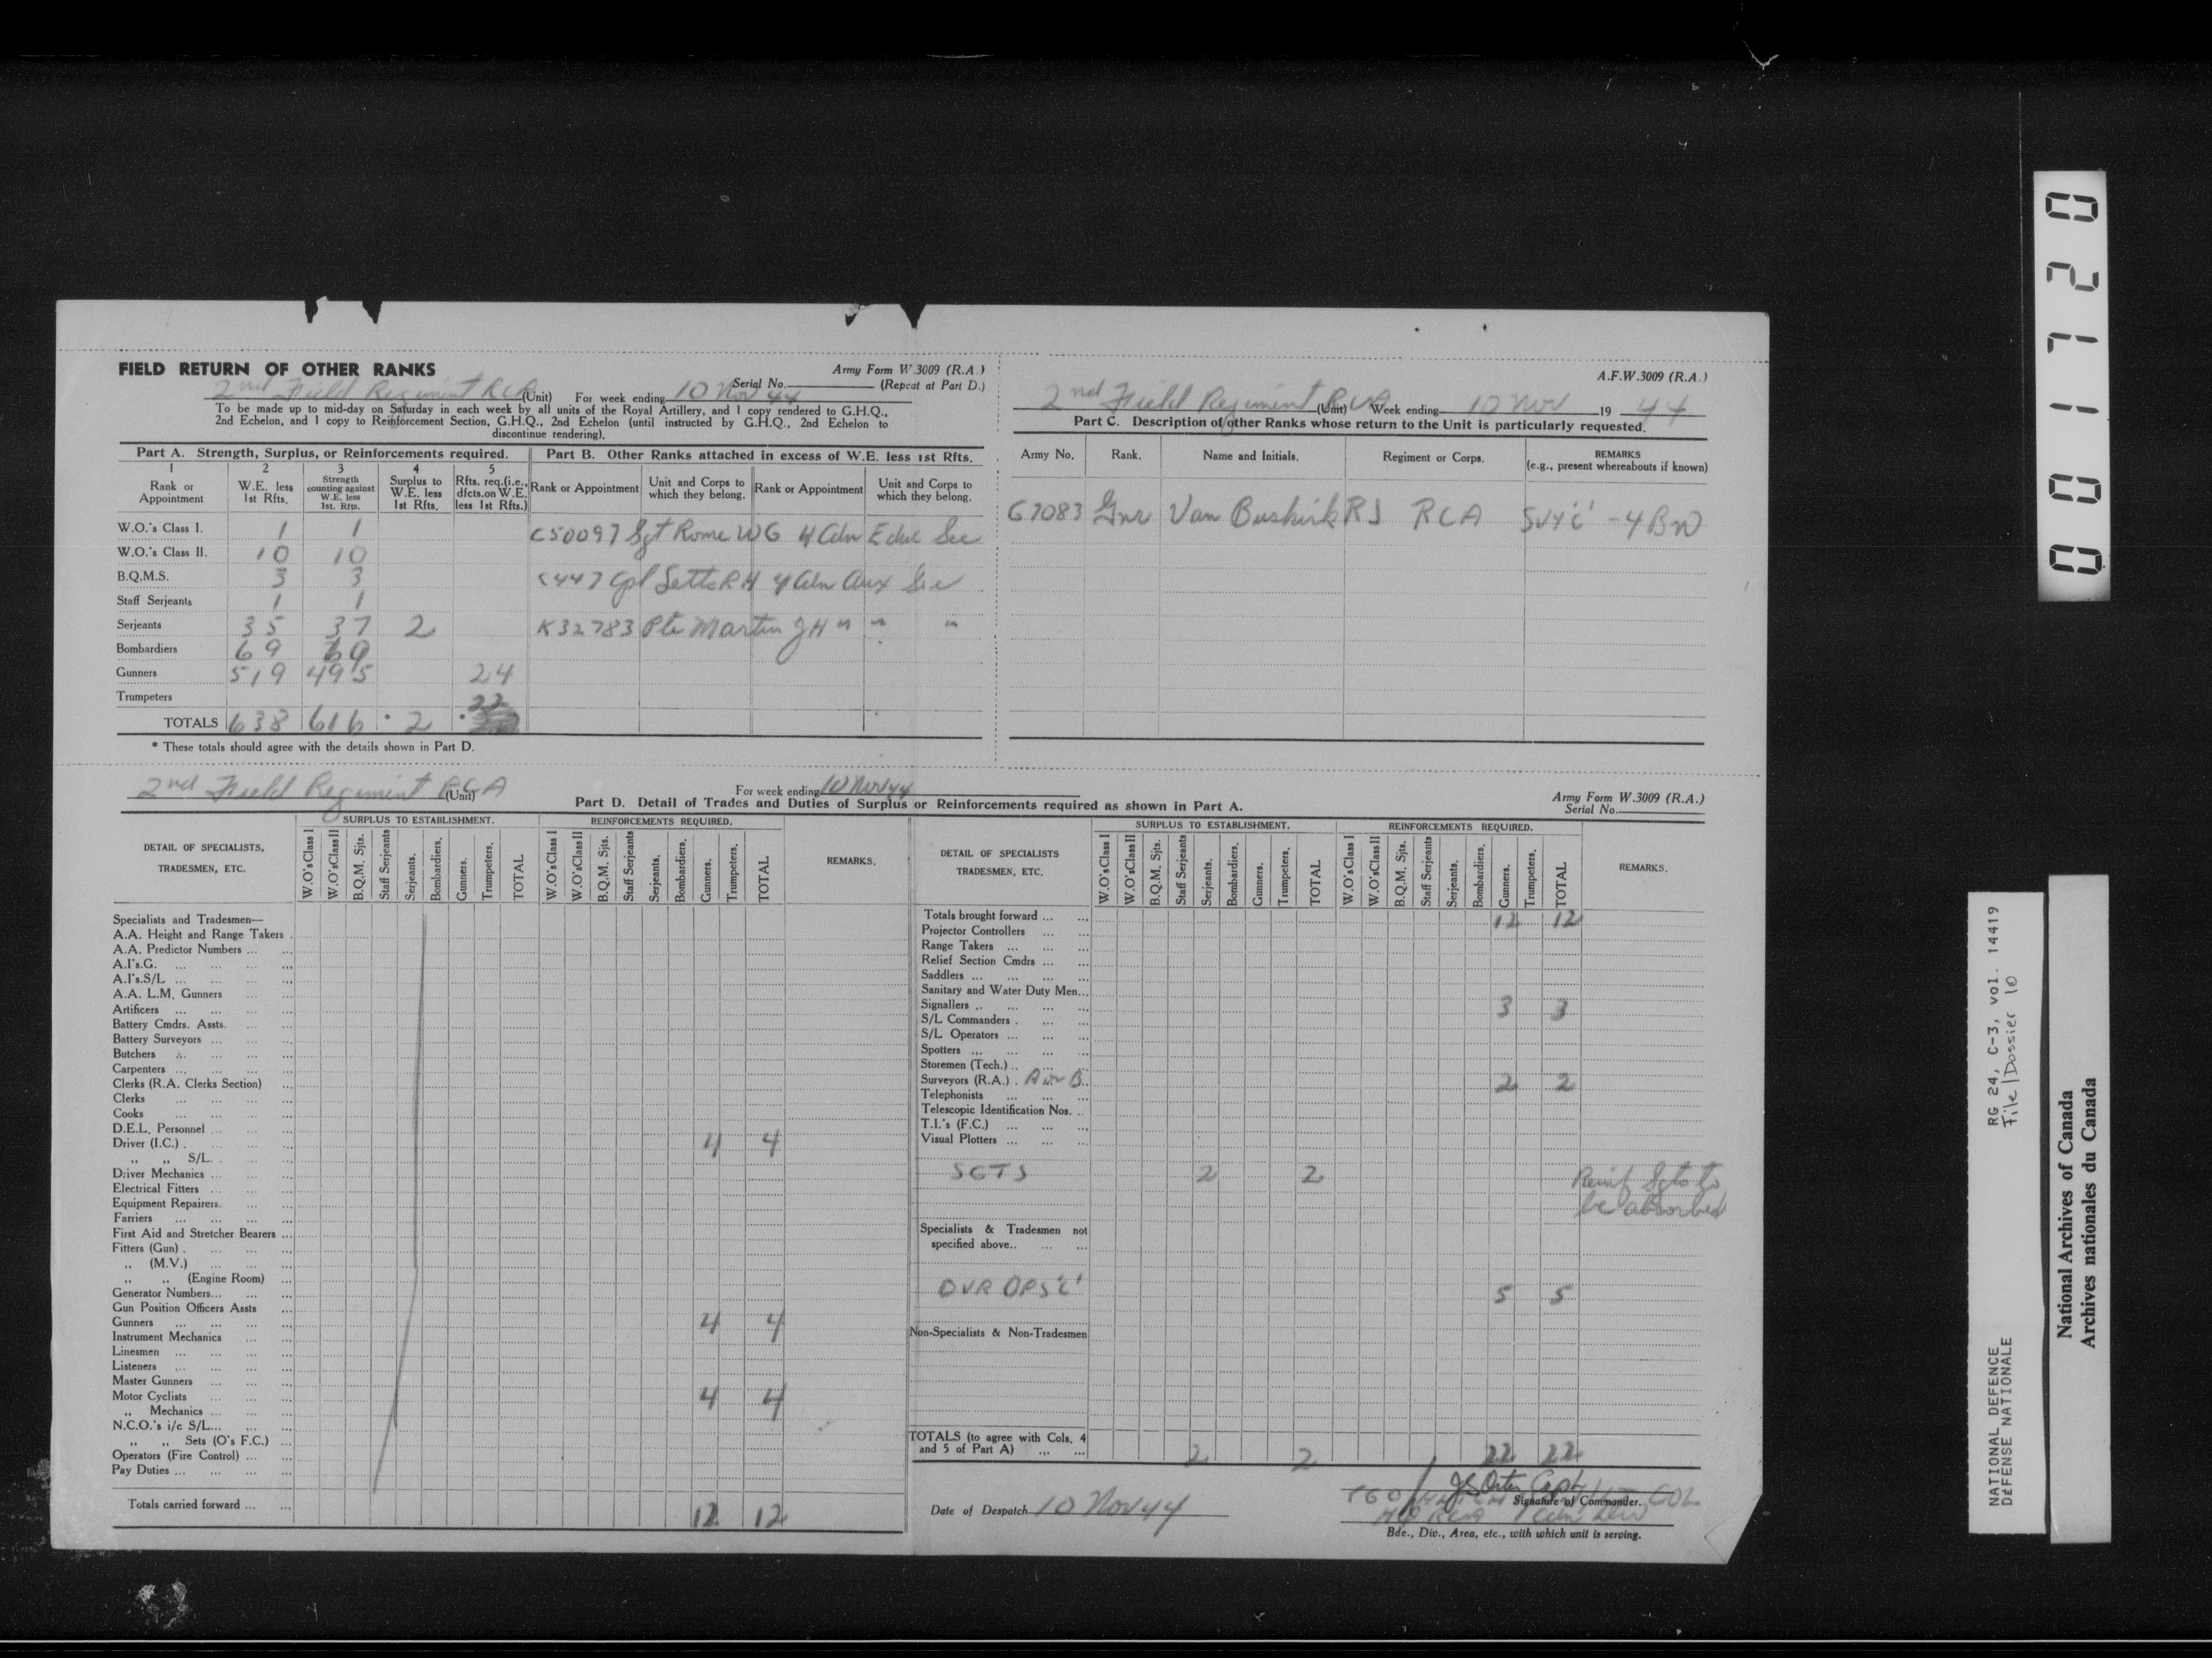 FIELD RETURN OF OTHER RANKS
Army Form W.3009 (R.A.)
Serial No. (Repeat at Part D.)
2nd Field Regiment RCA (Unit) For week ending 10 Nov 44
To be made up to mid-day on Saturday in each week by all units of the Royal Artillery, and 1 copy rendered to G.H.Q.,
2nd Echelon, and 1 copy to Reinforcement Section, G.H.Q., 2nd Echelon (until instructed by G.H.Q., 2nd Echelon to
discontinue rendering).
Part A. Strength, Surplus, or Reinforcements required.
1 2 3 4 5
Rank or Appointment
W.E. less 1st Rfts.
Strength counting against W.E. less 1st. Rfts.
Surplus to W.E. less 1st Rfts.
Rfts. req.(i.e., dfcts.on W.E. less 1st Rfts.)
W.O.'s Class I. 1 1
W.O.'s Class II. 10 10
B.Q.M.S. 3 3
Staff Serjeants 1 1
Serjeants 35 37 2
Bombardiers 69 69
Gunners 519 495 24
Trumpeters
TOTALS 638 616 * 2 * 22
* These totals should agree with the details shown in Part D.
Part B. Other Ranks attached in excess of W.E. less 1st Rfts.
Rank or Appointment
Unit and Corps to which they belong.
Rank or Appointment
Unit and Corps to which they belong.
C50097 Sgt Rome WG 4 Cdn Educ Sec
C447 Cpl Setts RH 4 Cdn Aux Sec
K32783 Pte Martin JH " " "
A.F.W.3009 (R.A.)
2nd Field Regiment RCA (Unit) Week ending 10 Nov 19 44
Part C. Description of other Ranks whose return to the Unit is particularly requested.
Army No. Rank. Name and Initials. Regiment or Corps. REMARKS
(e.g., present whereabouts if known)
G7083 Gnr Van Buskirk RJ RCA SVY 'C' - 4 BN
2nd Field Regiment RCA (Unit)
For week ending 10 Nov 44
Part D. Detail of Trades and Duties of Surplus or Reinforcements required as shown in Part A.
Army Form W.3009 (R.A.)
Serial No.
DETAIL OF SPECIALISTS,
TRADESMEN, ETC.
SURPLUS TO ESTABLISHMENT.
W.O's Class I W.O's Class II B.Q.M. Sjts. Staff Serjeants Serjeants. Bombardiers. Gunners. Trumpeters. TOTAL
REINFORCEMENTS REQUIRED.
W.O's Class I W.O's Class II B.Q.M. Sjts. Staff Serjeants Serjeants. Bombardiers. Gunners. Trumpeters. TOTAL
REMARKS.
Specialists and Tradesmen—
A.A. Height and Range Takers .
A.A. Predictor Numbers ... ...
A.I's.G. ... ... ... ...
A.I's.S/L ... ... ... ...
A.A. L.M. Gunners ... ...
Artificers ... ... ... ...
Battery Cmdrs. Assts. ... ...
Battery Surveyors ... ... ...
Butchers ... ... ... ...
Carpenters ... ... ... ...
Clerks (R.A. Clerks Section) ...
Clerks ... ... ... ...
Cooks ... ... ... ...
D.E.L. Personnel ... ... ...
Driver (I.C.) . ... ... ... 4 4
,, ,, S/L. . ... ...
Driver Mechanics ... ... ...
Electrical Fitters ... ... ...
Equipment Repairers. ... ...
Farriers ... ... ... ...
First Aid and Stretcher Bearers ...
Fitters (Gun) . ... ... ...
,, (M.V.) ... ... ...
,, ,, (Engine Room) ...
Generator Numbers... ... ...
Gun Position Officers Assts ...
Gunners ... ... ... ... 4 4
Instrument Mechanics ... ...
Linesmen ... ... ... ...
Listeners ... ... ... ...
Master Gunners ... ... ...
Motor Cyclists ... ... ... 4 4
,, Mechanics ... ... ...
N.C.O.'s i/c S/L... ... ...
,, ,, Sets (O's F.C.) ...
Operators (Fire Control) ... ...
Pay Duties ... ... ... ...
Totals carried forward ... ... 12 12
DETAIL OF SPECIALISTS
TRADESMEN, ETC.
SURPLUS TO ESTABLISHMENT.
W.O's Class I W.O's Class II B.Q.M. Sjts. Staff Serjeants Serjeants. Bombardiers. Gunners. Trumpeters. TOTAL
REINFORCEMENTS REQUIRED.
W.O's Class I W.O's Class II B.Q.M. Sjts. Staff Serjeants Serjeants. Bombardiers. Gunners. Trumpeters. TOTAL
REMARKS.
Totals brought forward ... ... 12 12
Projector Controllers ... ...
Range Takers ... ... ...
Relief Section Cmdrs ... ...
Saddlers ... ... ... ...
Sanitary and Water Duty Men...
Signallers .. ... ... ... 3 3
S/L Commanders . ... ...
S/L Operators ... ... ...
Spotters ... ... ... ...
Storemen (Tech.) .. ... ...
Surveyors (R.A.) . A or B.. 2 2
Telephonists ... ... ...
Telescopic Identification Nos. ..
T.I.'s (F.C.) ... ... ...
Visual Plotters ... ... ...
SGTS 2 2 Reinf Sgts to
be absorbed
Specialists & Tradesmen not
specified above.. ... ...
DVR OPS 'C' 5 5
Non-Specialists & Non-Tradesmen
TOTALS (to agree with Cols. 4
and 5 of Part A) ... ... 2 2 22 22
Date of Despatch 10 Nov 44
Capt
Signature of Commander.
COL
HQ RCA 1 Cdn Div
Bde., Div., Area, etc., with which unit is serving.
001720
RG 24, C-3, vol. 14419
File/Dossier 10
NATIONAL DEFENCE
DÉFENSE NATIONALE
National Archives of Canada
Archives nationales du Canada